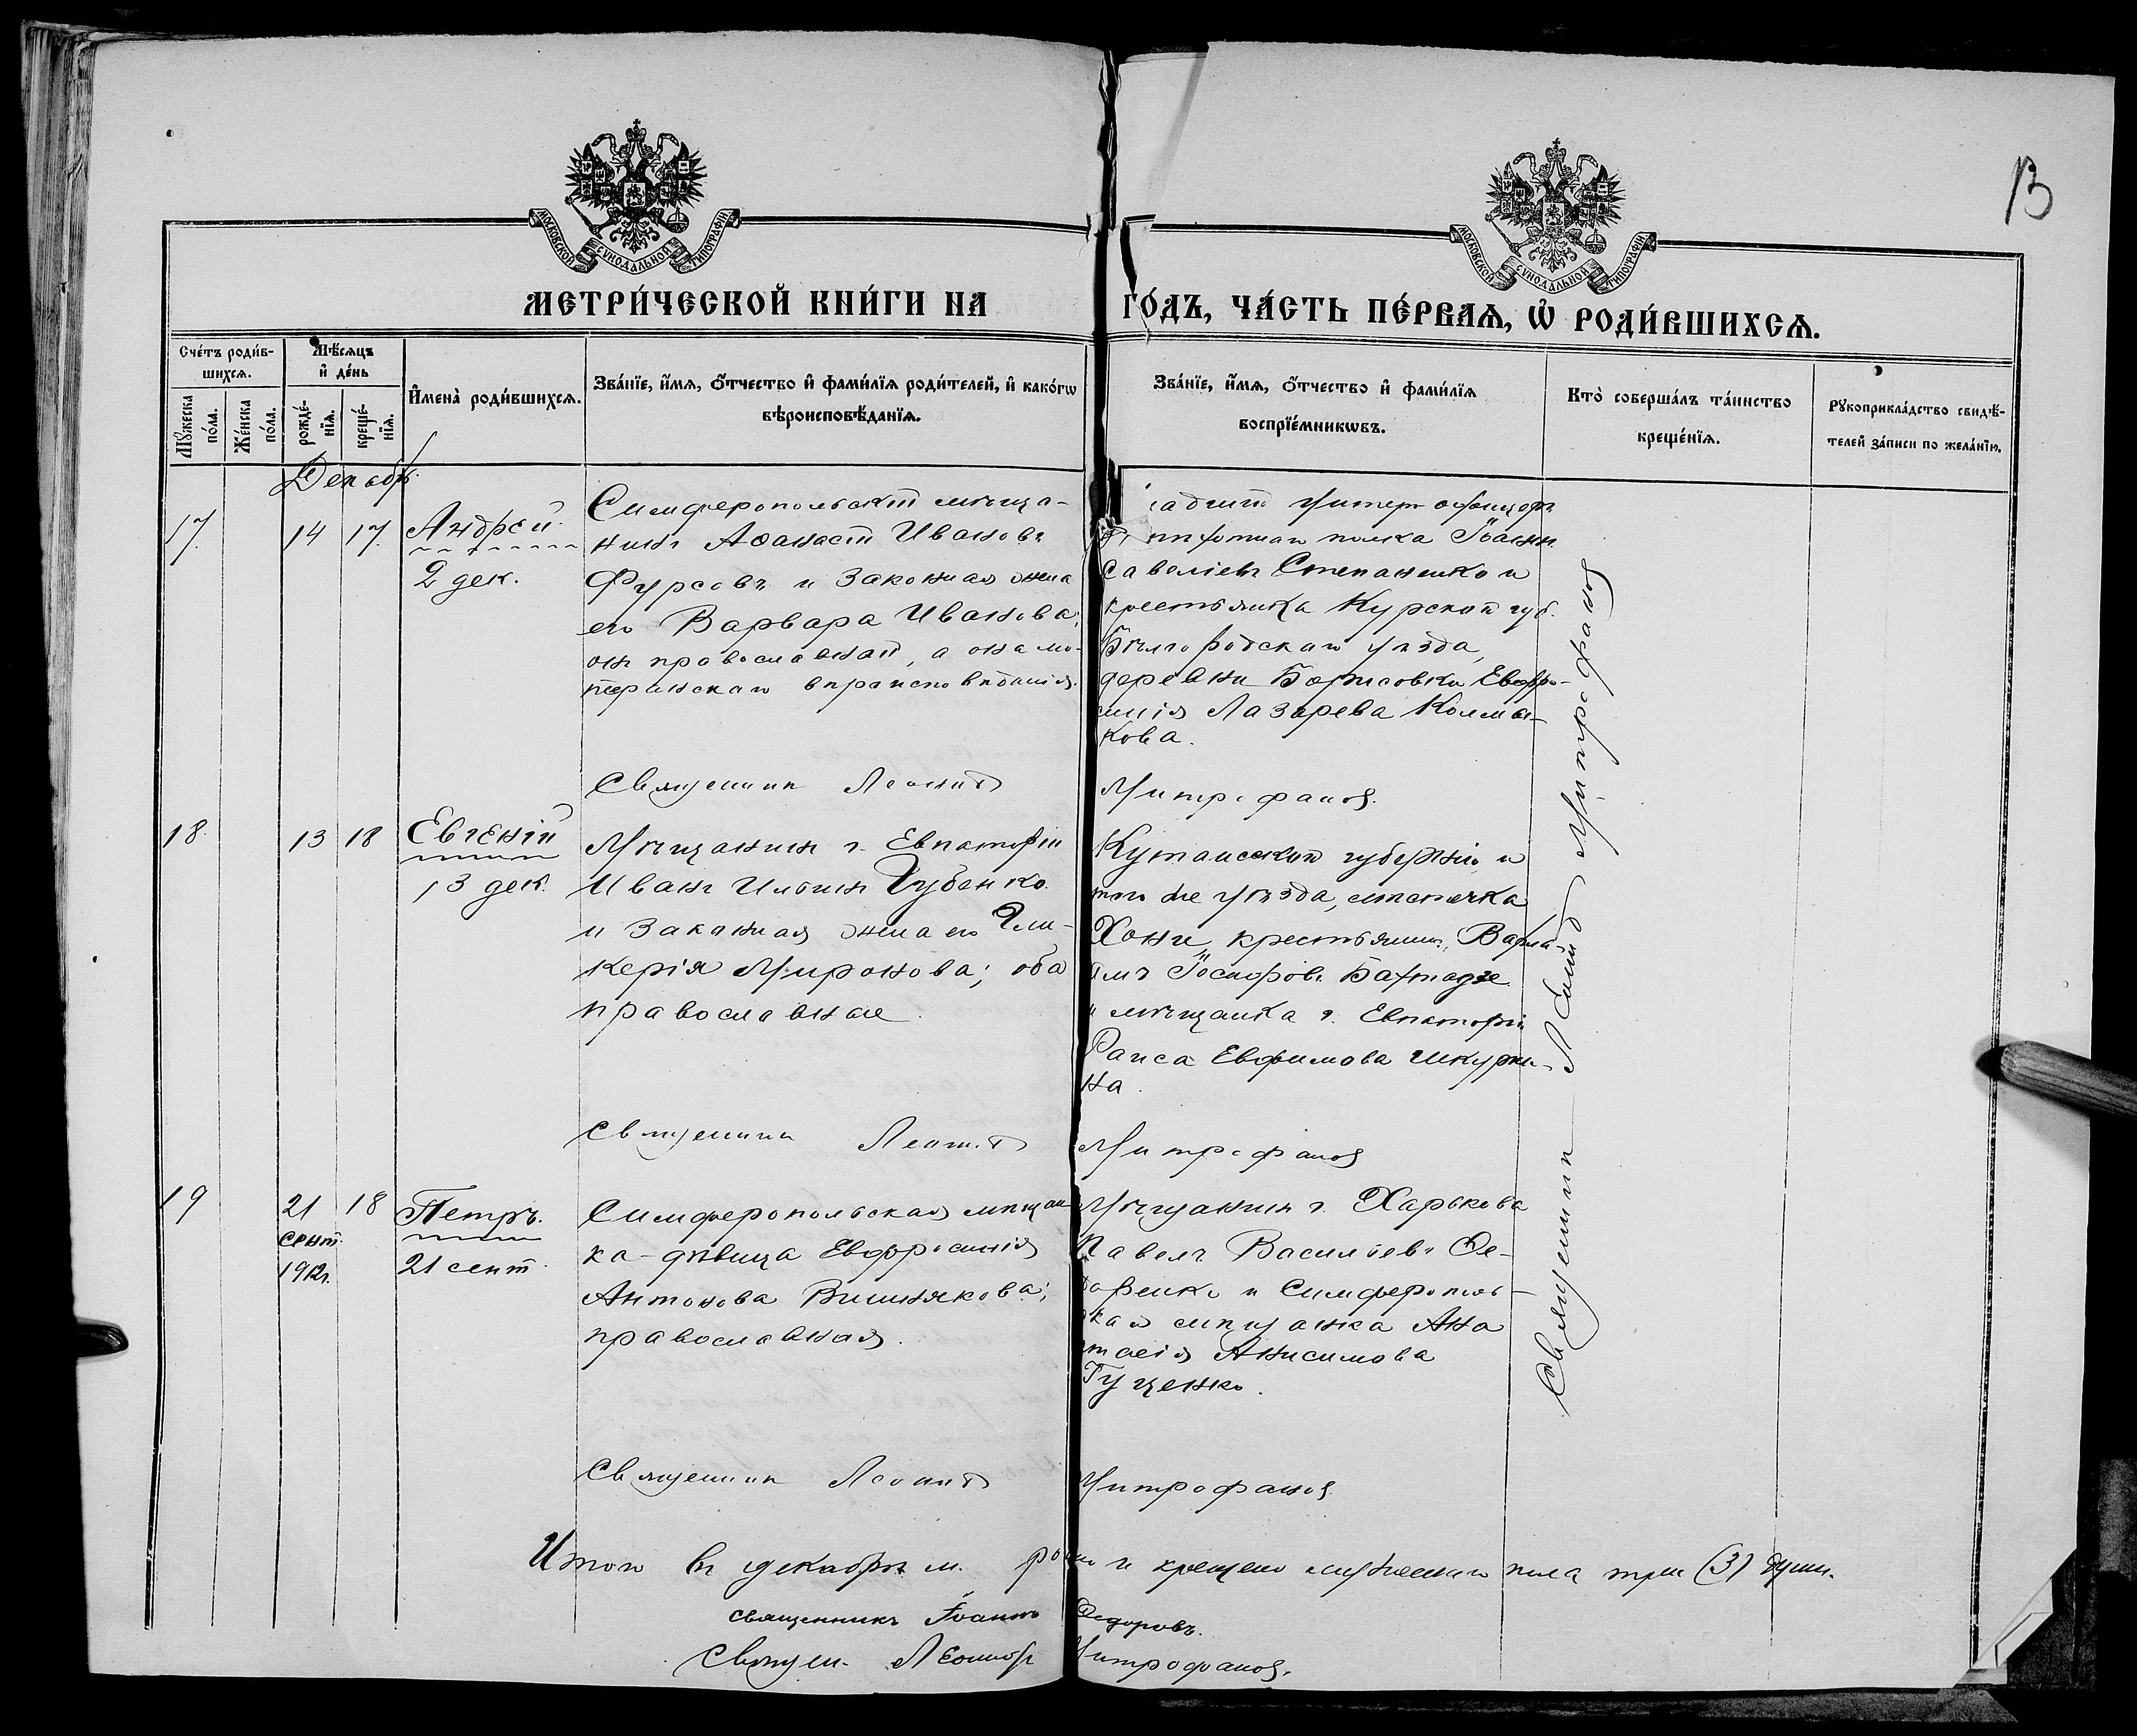 13
МОСКОВСКОЙ СѴНОДАЛЬНОЙ ТИПОГРАФІИ
МОСКОВСКОЙ СѴНОДАЛЬНОЙ ТИПОГРАФІИ
МЕТРИ́ЧЕСКОЙ КНИ́ГИ НА
ГО́ДЪ, ЧА́СТЬ ПЕ́РВАѦ, Ѡ҆ РОДИ́ВШИХСѦ.
Сче́тъ роди́в-
шихсѧ.
Мꙋ́жеска
по́ла.
Же́нска
по́ла.
Мѣ́сѧцъ
и҆ де́нь
рожде́-
нїѧ.
креще́-
нїѧ.
И҆мена̀ роди́вшихсѧ.
Зва́нїе, и҆́мѧ, ѻ҆́тчество и҆ фами́лїѧ роди́телей, и҆ како́гѡ
вѣроисповѣ́данїѧ.
Зва́нїе, и҆́мѧ, ѻ҆́тчество и҆ фами́лїѧ
воспрїе́мникѡвъ.
Кто̀ соверша́лъ та́инство
креще́нїѧ.
Рꙋкоприкла́дство свидѣ́-
телей за́писи по жела́нїю.
Декабрь
17
14
17
Андрей
2 дек.
Симферопольскій мѣща-
нинъ Аѳанасій Ивановъ
Фурсовъ и законная жена
его Варвара Иванова;
онъ православный, а она лю-
теранскаго вѣроисповѣданія.
унтеръ офицеръ
пѣхотнаго полка Іоаннъ
Савеліевъ Степаненко и
крестьянка Курской губ.
Бѣлгородскаго уѣзда,
деревни Борисовки Евфро-
синія Лазарева Колмы-
кова.
Священникъ Леонидъ
Митрофановъ
18
13
18
Евгеній
13 дек.
Мѣщанинъ г. Евпаторіи
Иванъ Ильинъ Губенко
и законная жена его Гли-
керія Миронова; оба
православные.
Кутаисской губерніи и
того же уѣзда, мѣстечка
Хони, крестьянинъ Варла-
амъ Іосифовъ Бахтадзе
и мѣщанка г. Евпаторіи
Раиса Евфимова Шкурки-
на.
Священникъ Леонидъ
Митрофановъ
19
21
сент.
1912г.
18
Петръ.
21 сент.
Симферопольская мѣщан
ка-дѣвица Евфросинія
Антонова Вишнякова;
православная.
Мѣщанинъ г. Харькова
Павелъ Васильевъ Ѳе-
доренко и Симферополь-
ская мѣщанка Ана
стасія Анисимова
Гуценко.
Священникъ Леонидъ
Митрофановъ
Священникъ Леонидъ Митрофановъ
Итого въ декабрѣ м. рожд. и крещено мужескаго пола три (3) души.
Священникъ Іоаннъ Федоровъ.
Священ. Леонидъ Митрофановъ.